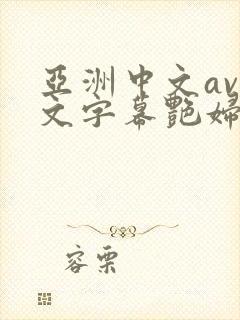 亞洲中文av
文字幕艷婦
容栗